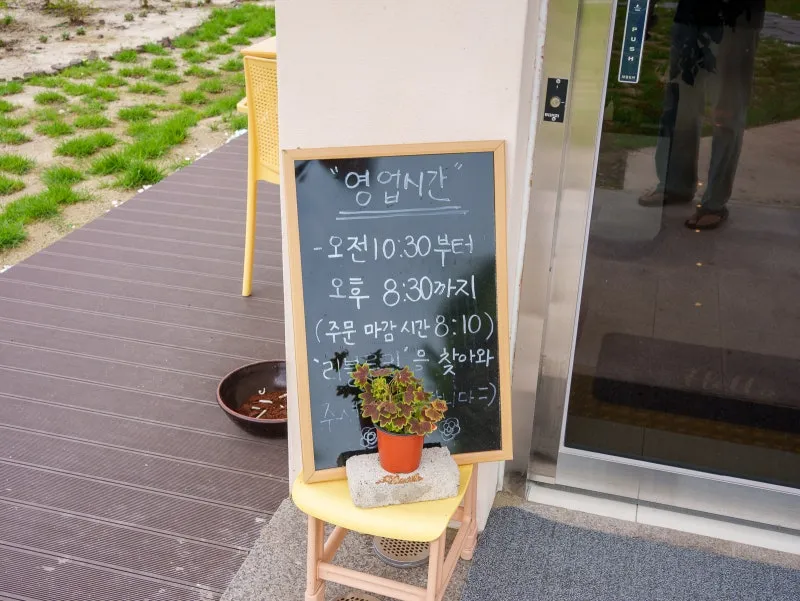 PUSH
"영업시간"
-오전 10:30부터
오후 8:30까지
(주문 마감 시간 8:10)
은 찾아와
니다=)